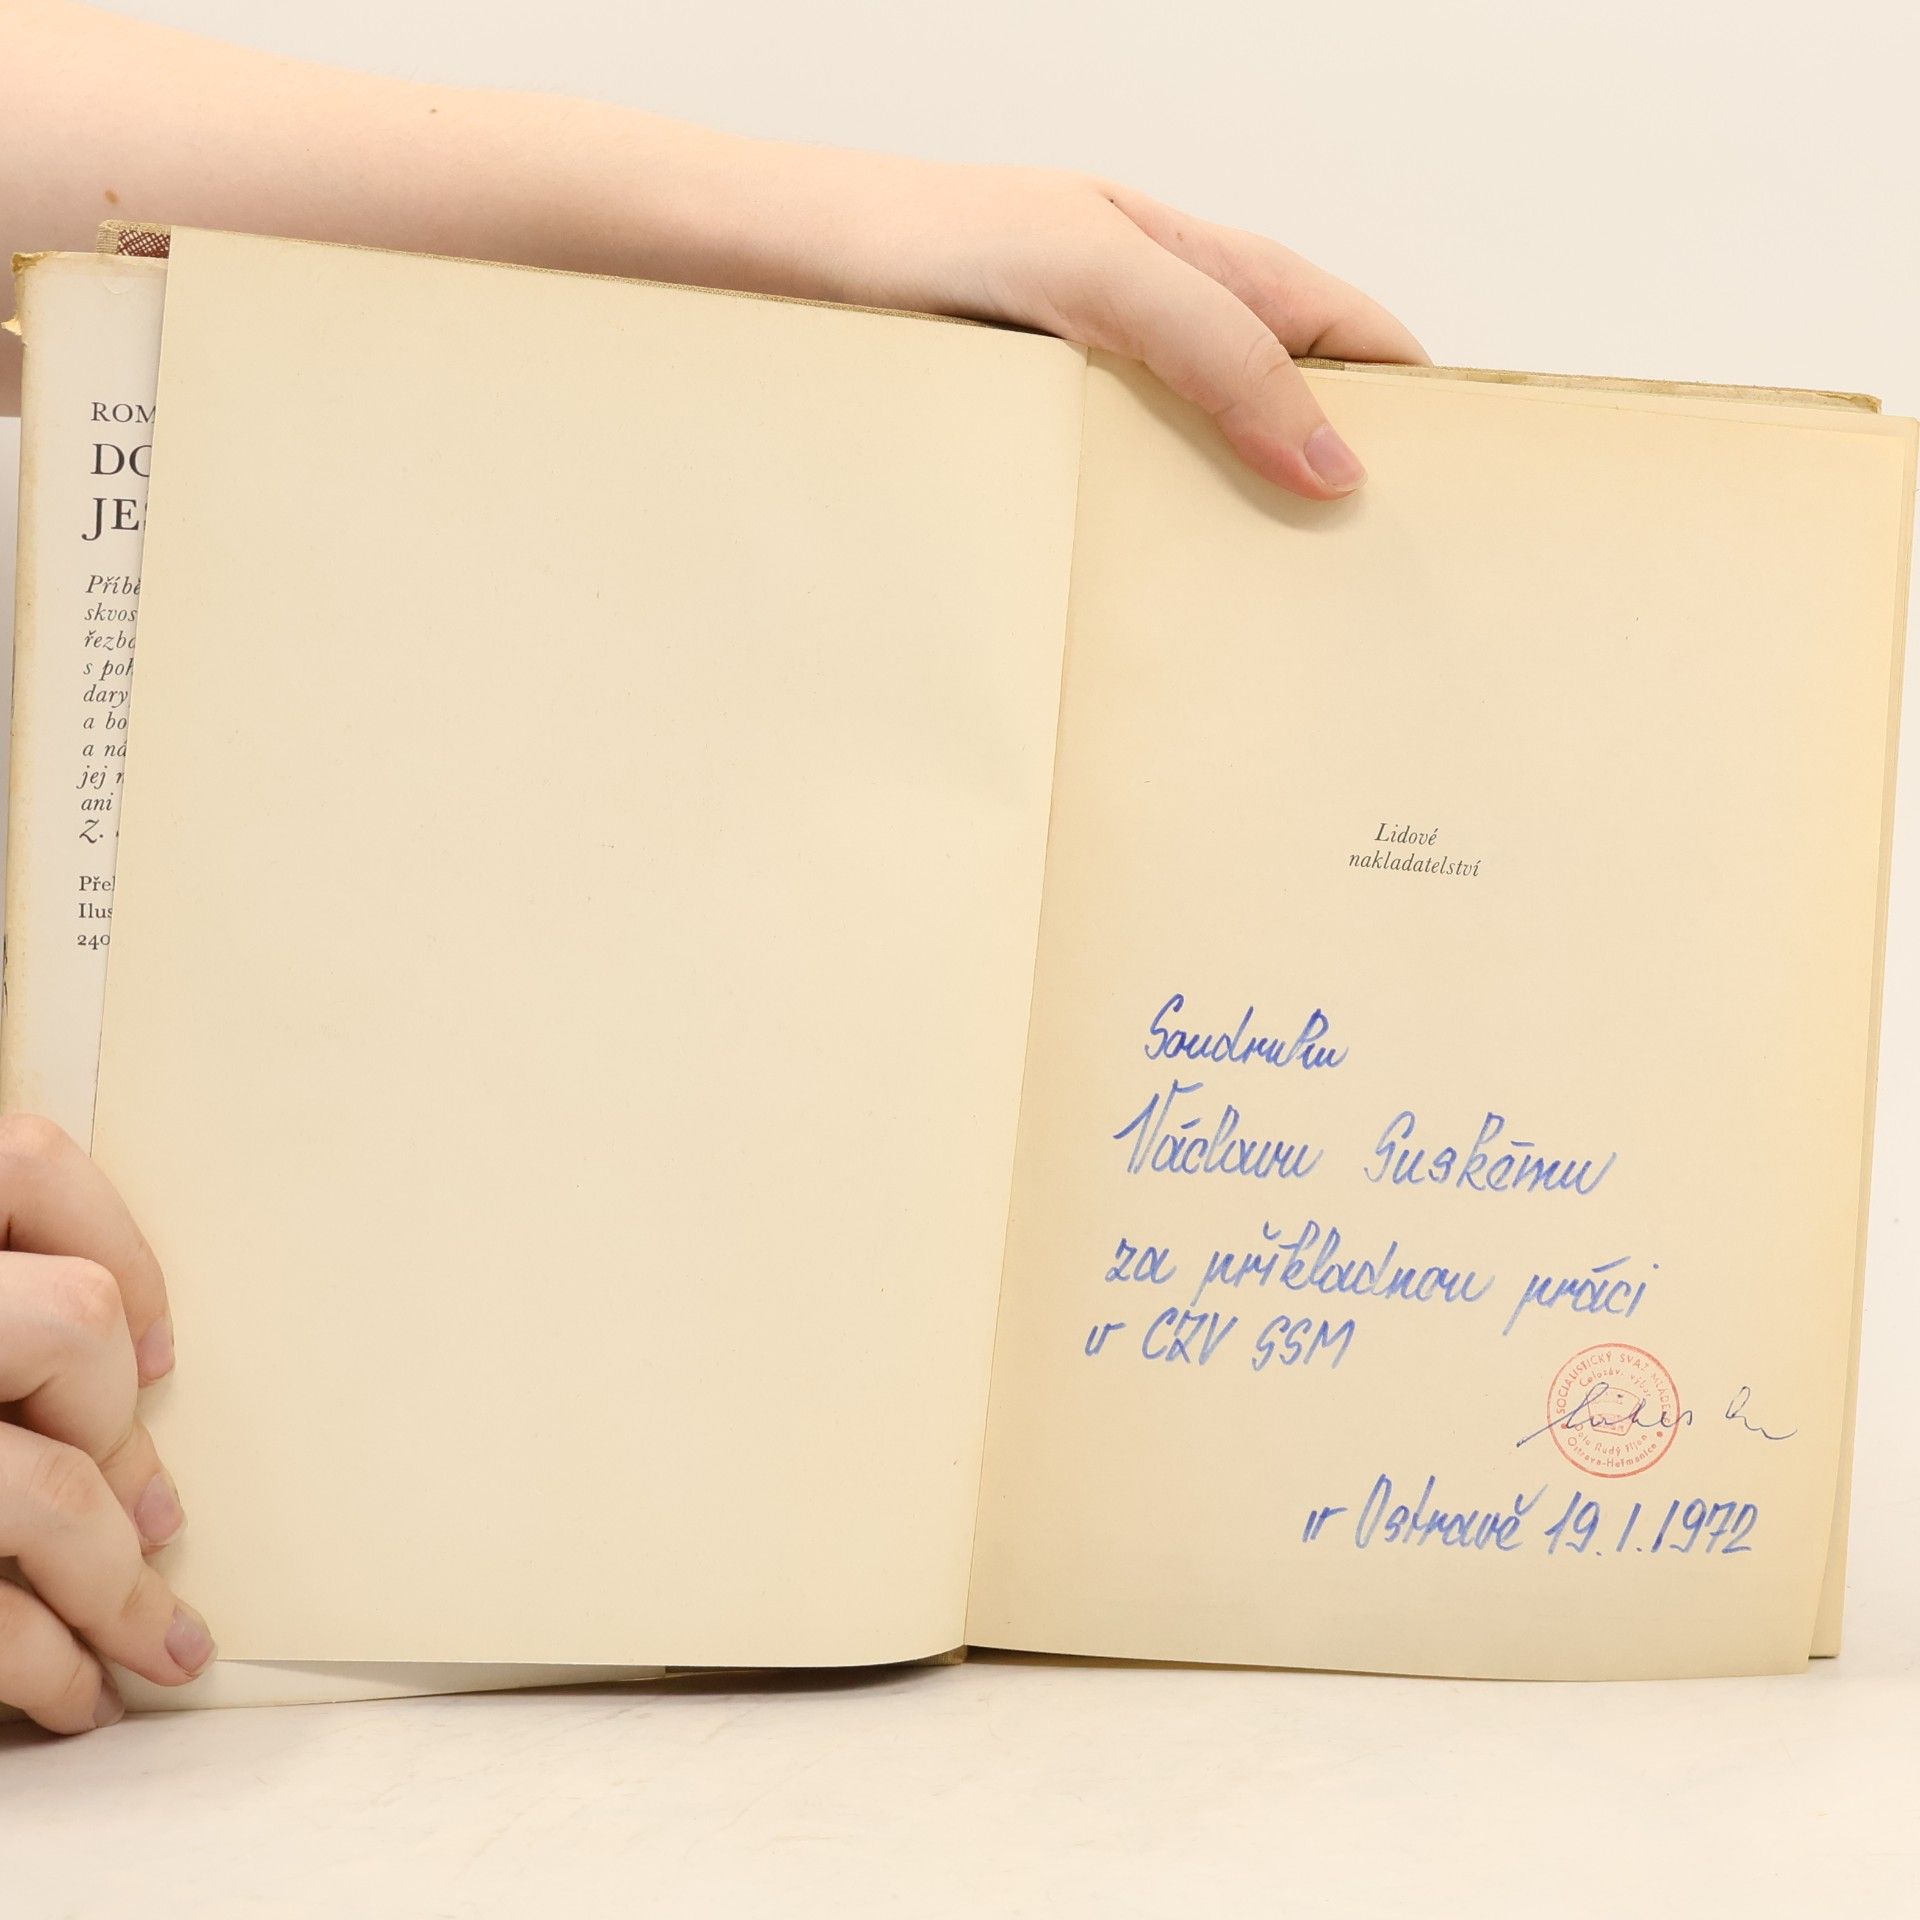 ROM
DO
JE
Příbě
skvos
řezbo
s poh
dary
a bo
a ná
jej
ani
Z.
Pře
Ilus
240
Lidové
nakladatelství
Soudruhu
Václavu Suskému
za příkladnou práci
v CZV SSM
SOCIALISTICKÝ SVAZ MLÁDEŽE
Celozáv. výbor
Dolu Rudý říjen
Ostrava-Heřmanice
v Ostravě 19.1.1972